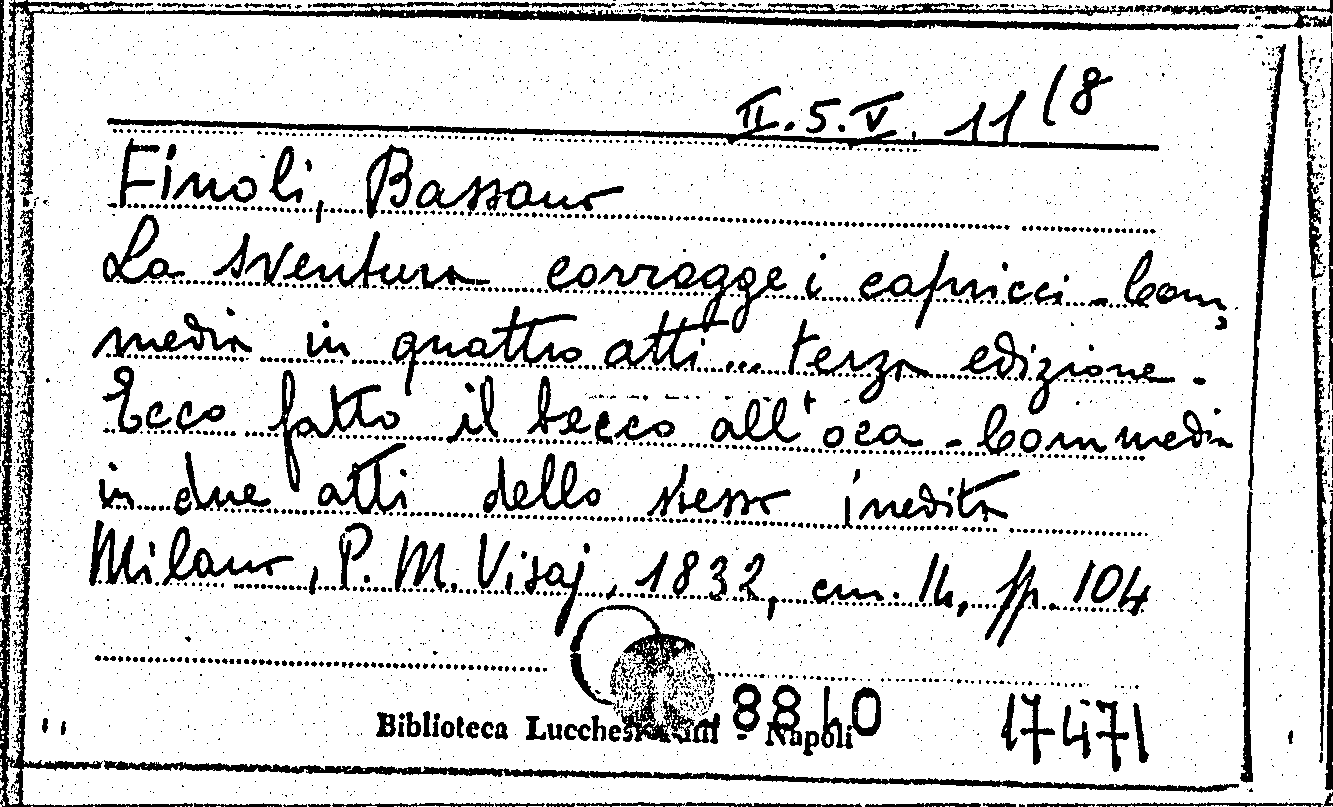 II.5.V.11(8
Finoli, Bassano
La sventura corregge i capricci - Com,
media in quattro atti... terza edizione.
Ecco fatto il becco all'oca - Commedia
in due atti dello stesso inedita
Milano, P. M. Visaj, 1832, cm. 14, pp. 104
8810
17471
Biblioteca - Napoli